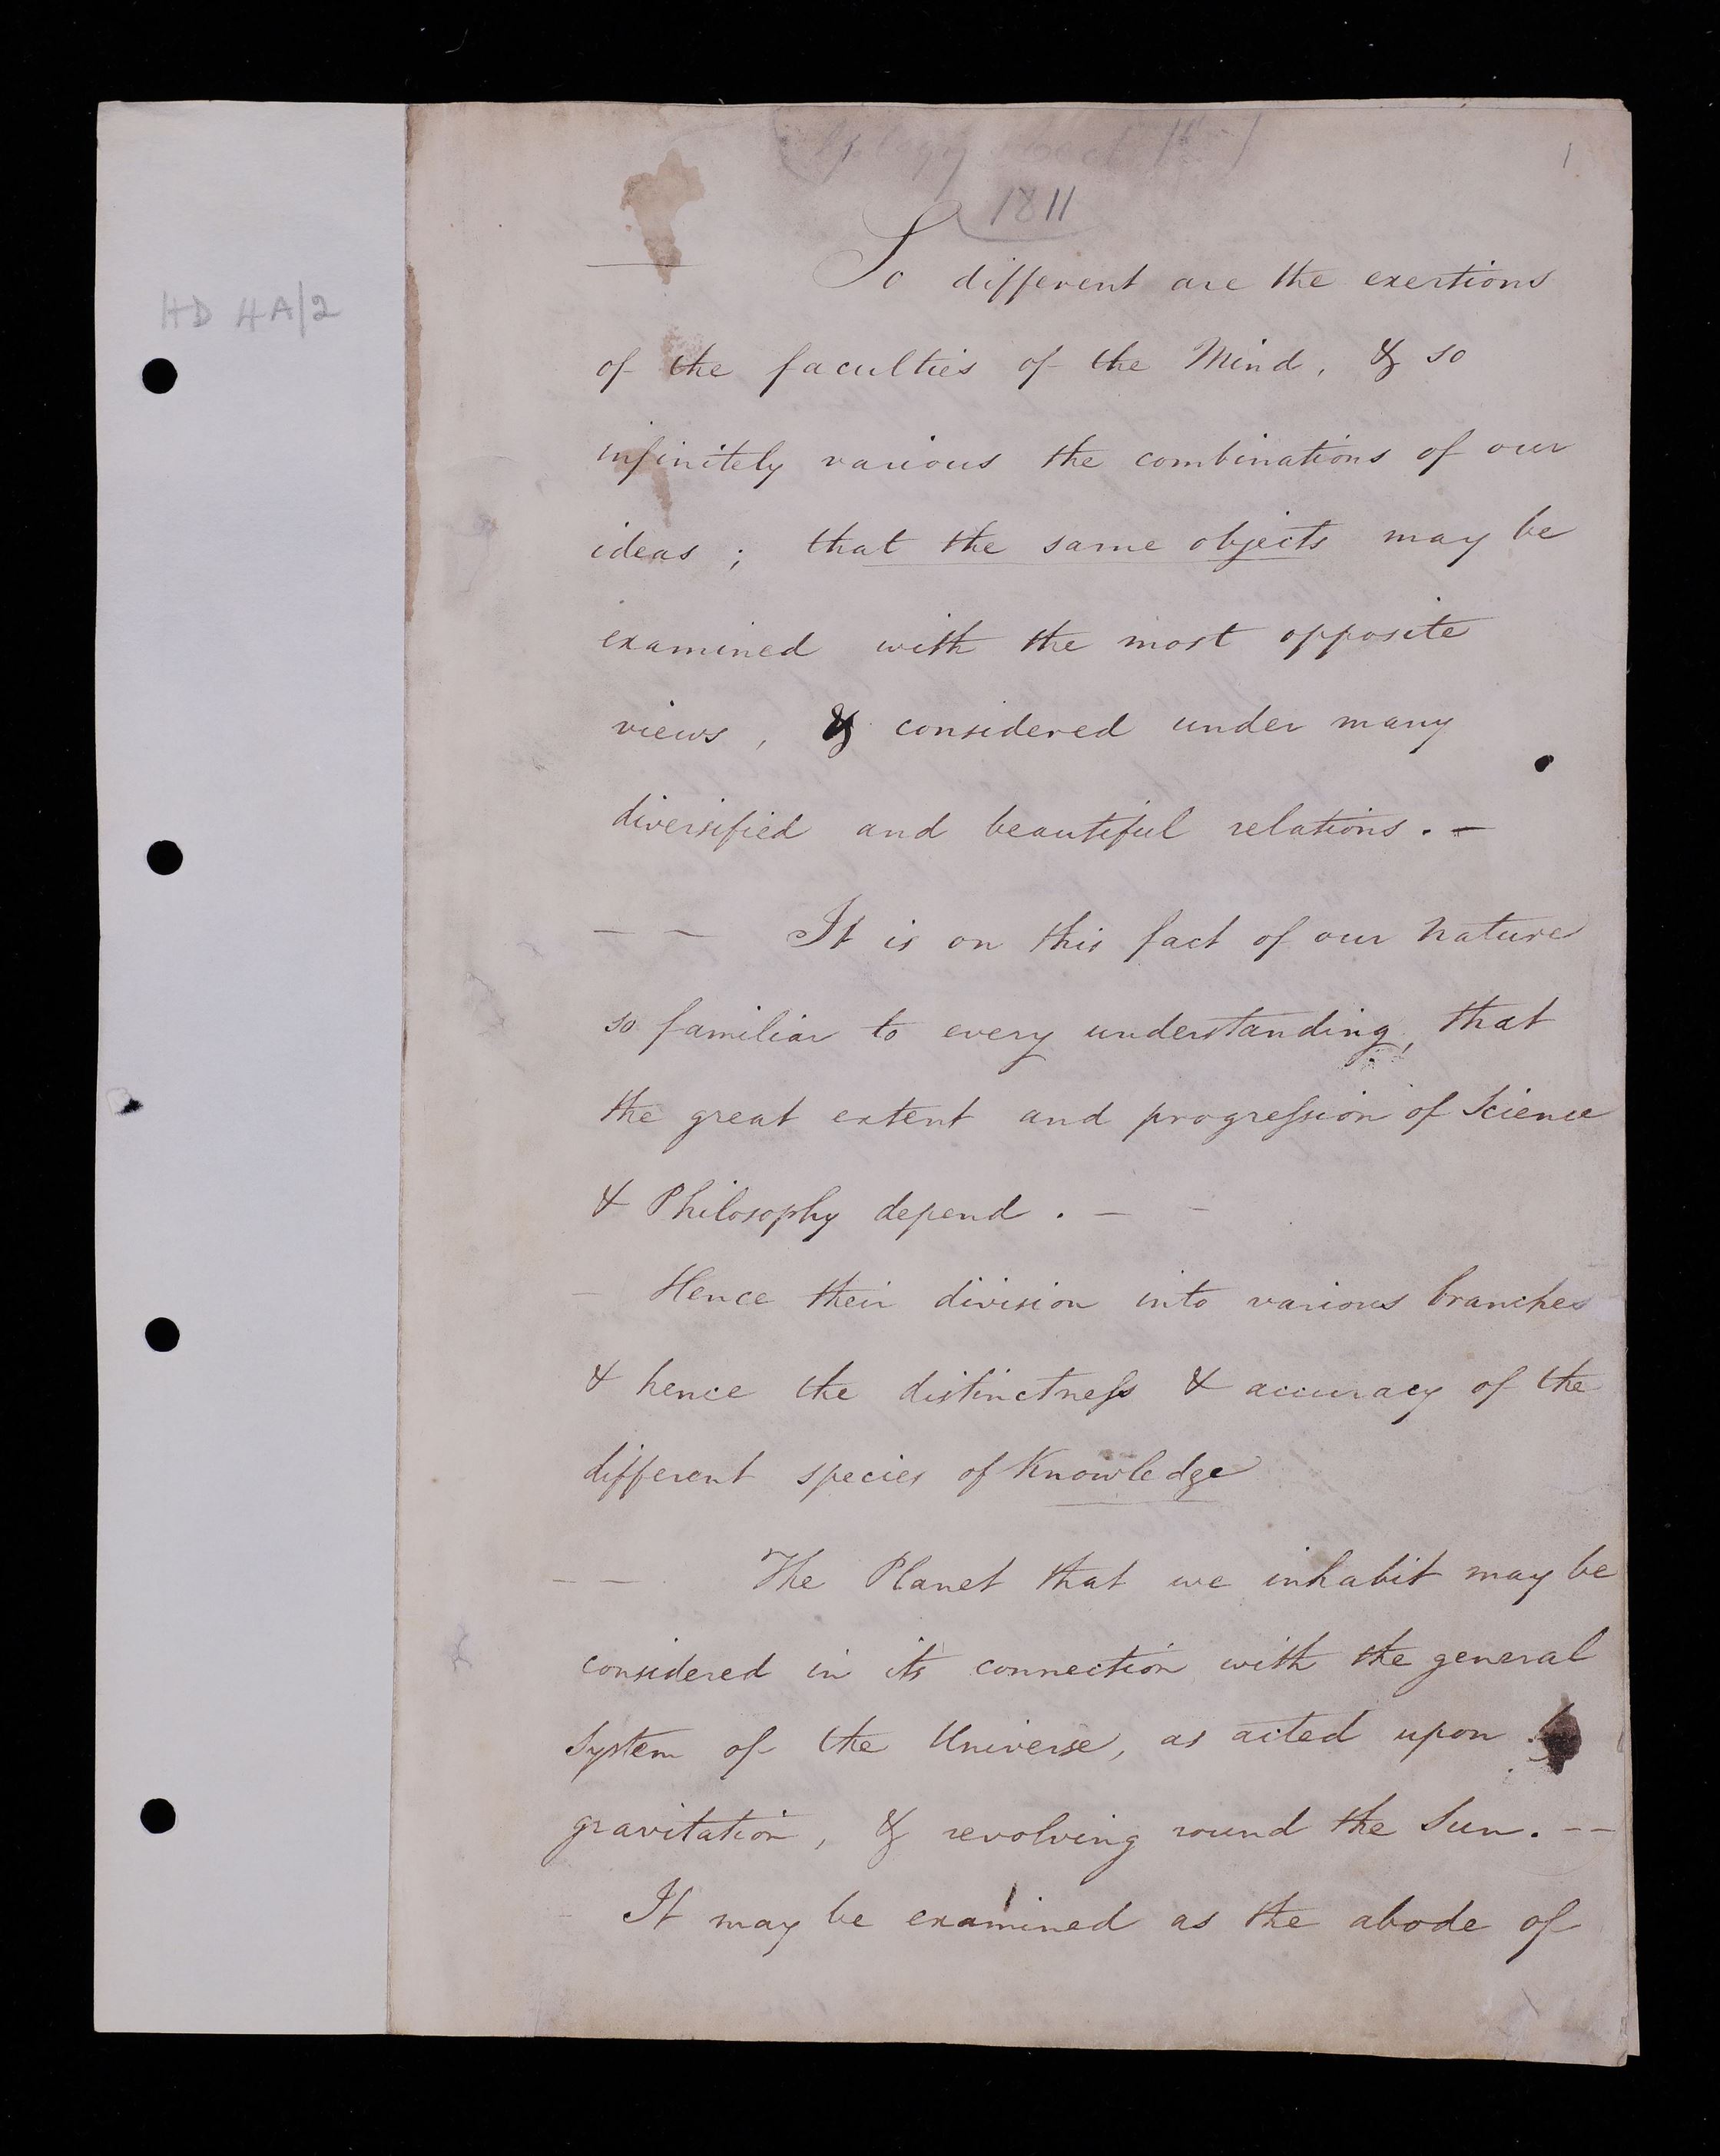 1
1811
HD 4A/2
So different are the exertions
of the faculties of the Mind, & so
infinitely various the combinations of our
ideas ; that the same objects may be
examined with the most opposite
views , & considered under many
diversified and beautiful relations . –
– – It is on this fact of our nature
so familiar to every understanding, that
the great extent and progreſsion of Science
& Philosophy depend . – –
– Hence their division into various branches
& hence the distinctneſs & accuracy of the
different species of Knowledge
– – The Planet that we inhabit may be
considered in its connection with the general
System of the Universe, as acted upon
gravitation , & revolving round the Sun. – –
– It may be examined as the abode of